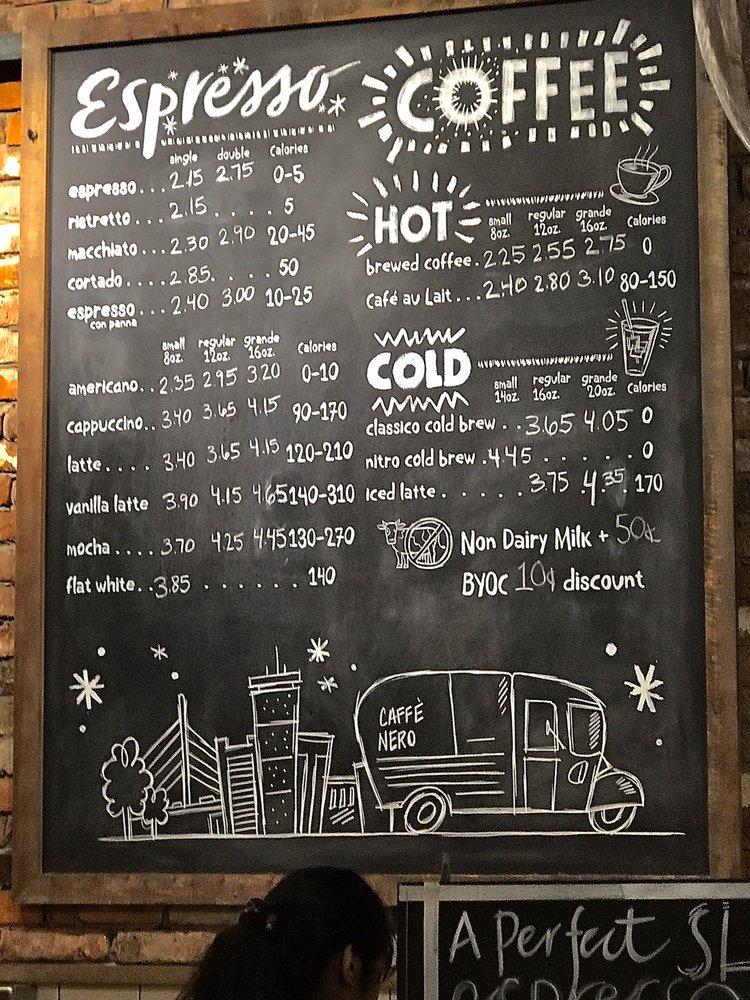 Espresso
single double Calories
espresso... 2.15 2.75 0-5
ristretto... 2.15.... 5
macchiato... 2.30 2.90 20-45
cortado... 2.85.... 50
espresso... 2.40 3.00 10-25
con panna
small regular grande Calories
8oz. 12oz. 16oz.
americano.. 2.35 2.95 3.20 0-10
cappuccino.. 3.40 3.65 4.15 90-170
latte.... 3.40 3.65 4.15 120-210
vanilla latte 3.90 4.15 4.65 140-310
mocha.... 3.70 4.25 4.45 130-270
flat white.. 3.85 ...... 140
COFFEE
HOT
small regular grande Calories
8oz. 12oz. 16oz.
brewed coffee. 2.25 2.55 2.75 0
Café au Lait... 2.40 2.80 3.10 80-150
COLD
small regular grande Calories
14oz. 16oz. 20oz.
classico cold brew.. 3.65 4.05 0
nitro cold brew. 4.45 ..... 0
iced latte...... 3.75 .4.35. 170
Non Dairy Milk + 50¢
BYOC 10¢ discount
CAFFÈ
NERO
A Perfect